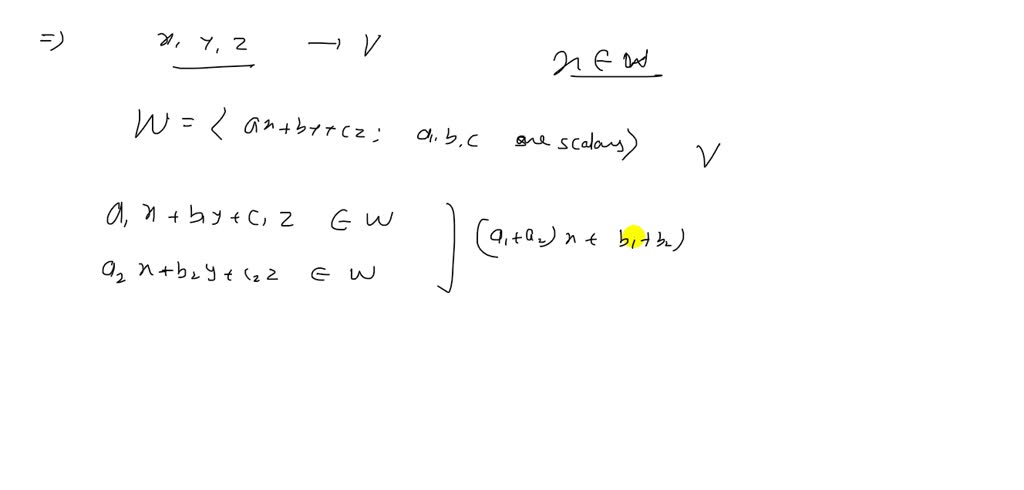 => x, y, z → V
x ∈ W
W = < ax+by+cz: a, b, c are scalars>
V
a₁ x + b₁y + c₁ z ∈ W
a₂ x + b₂y + c₂ z ∈ W
] (a₁+a₂) x + b₁+b₂)